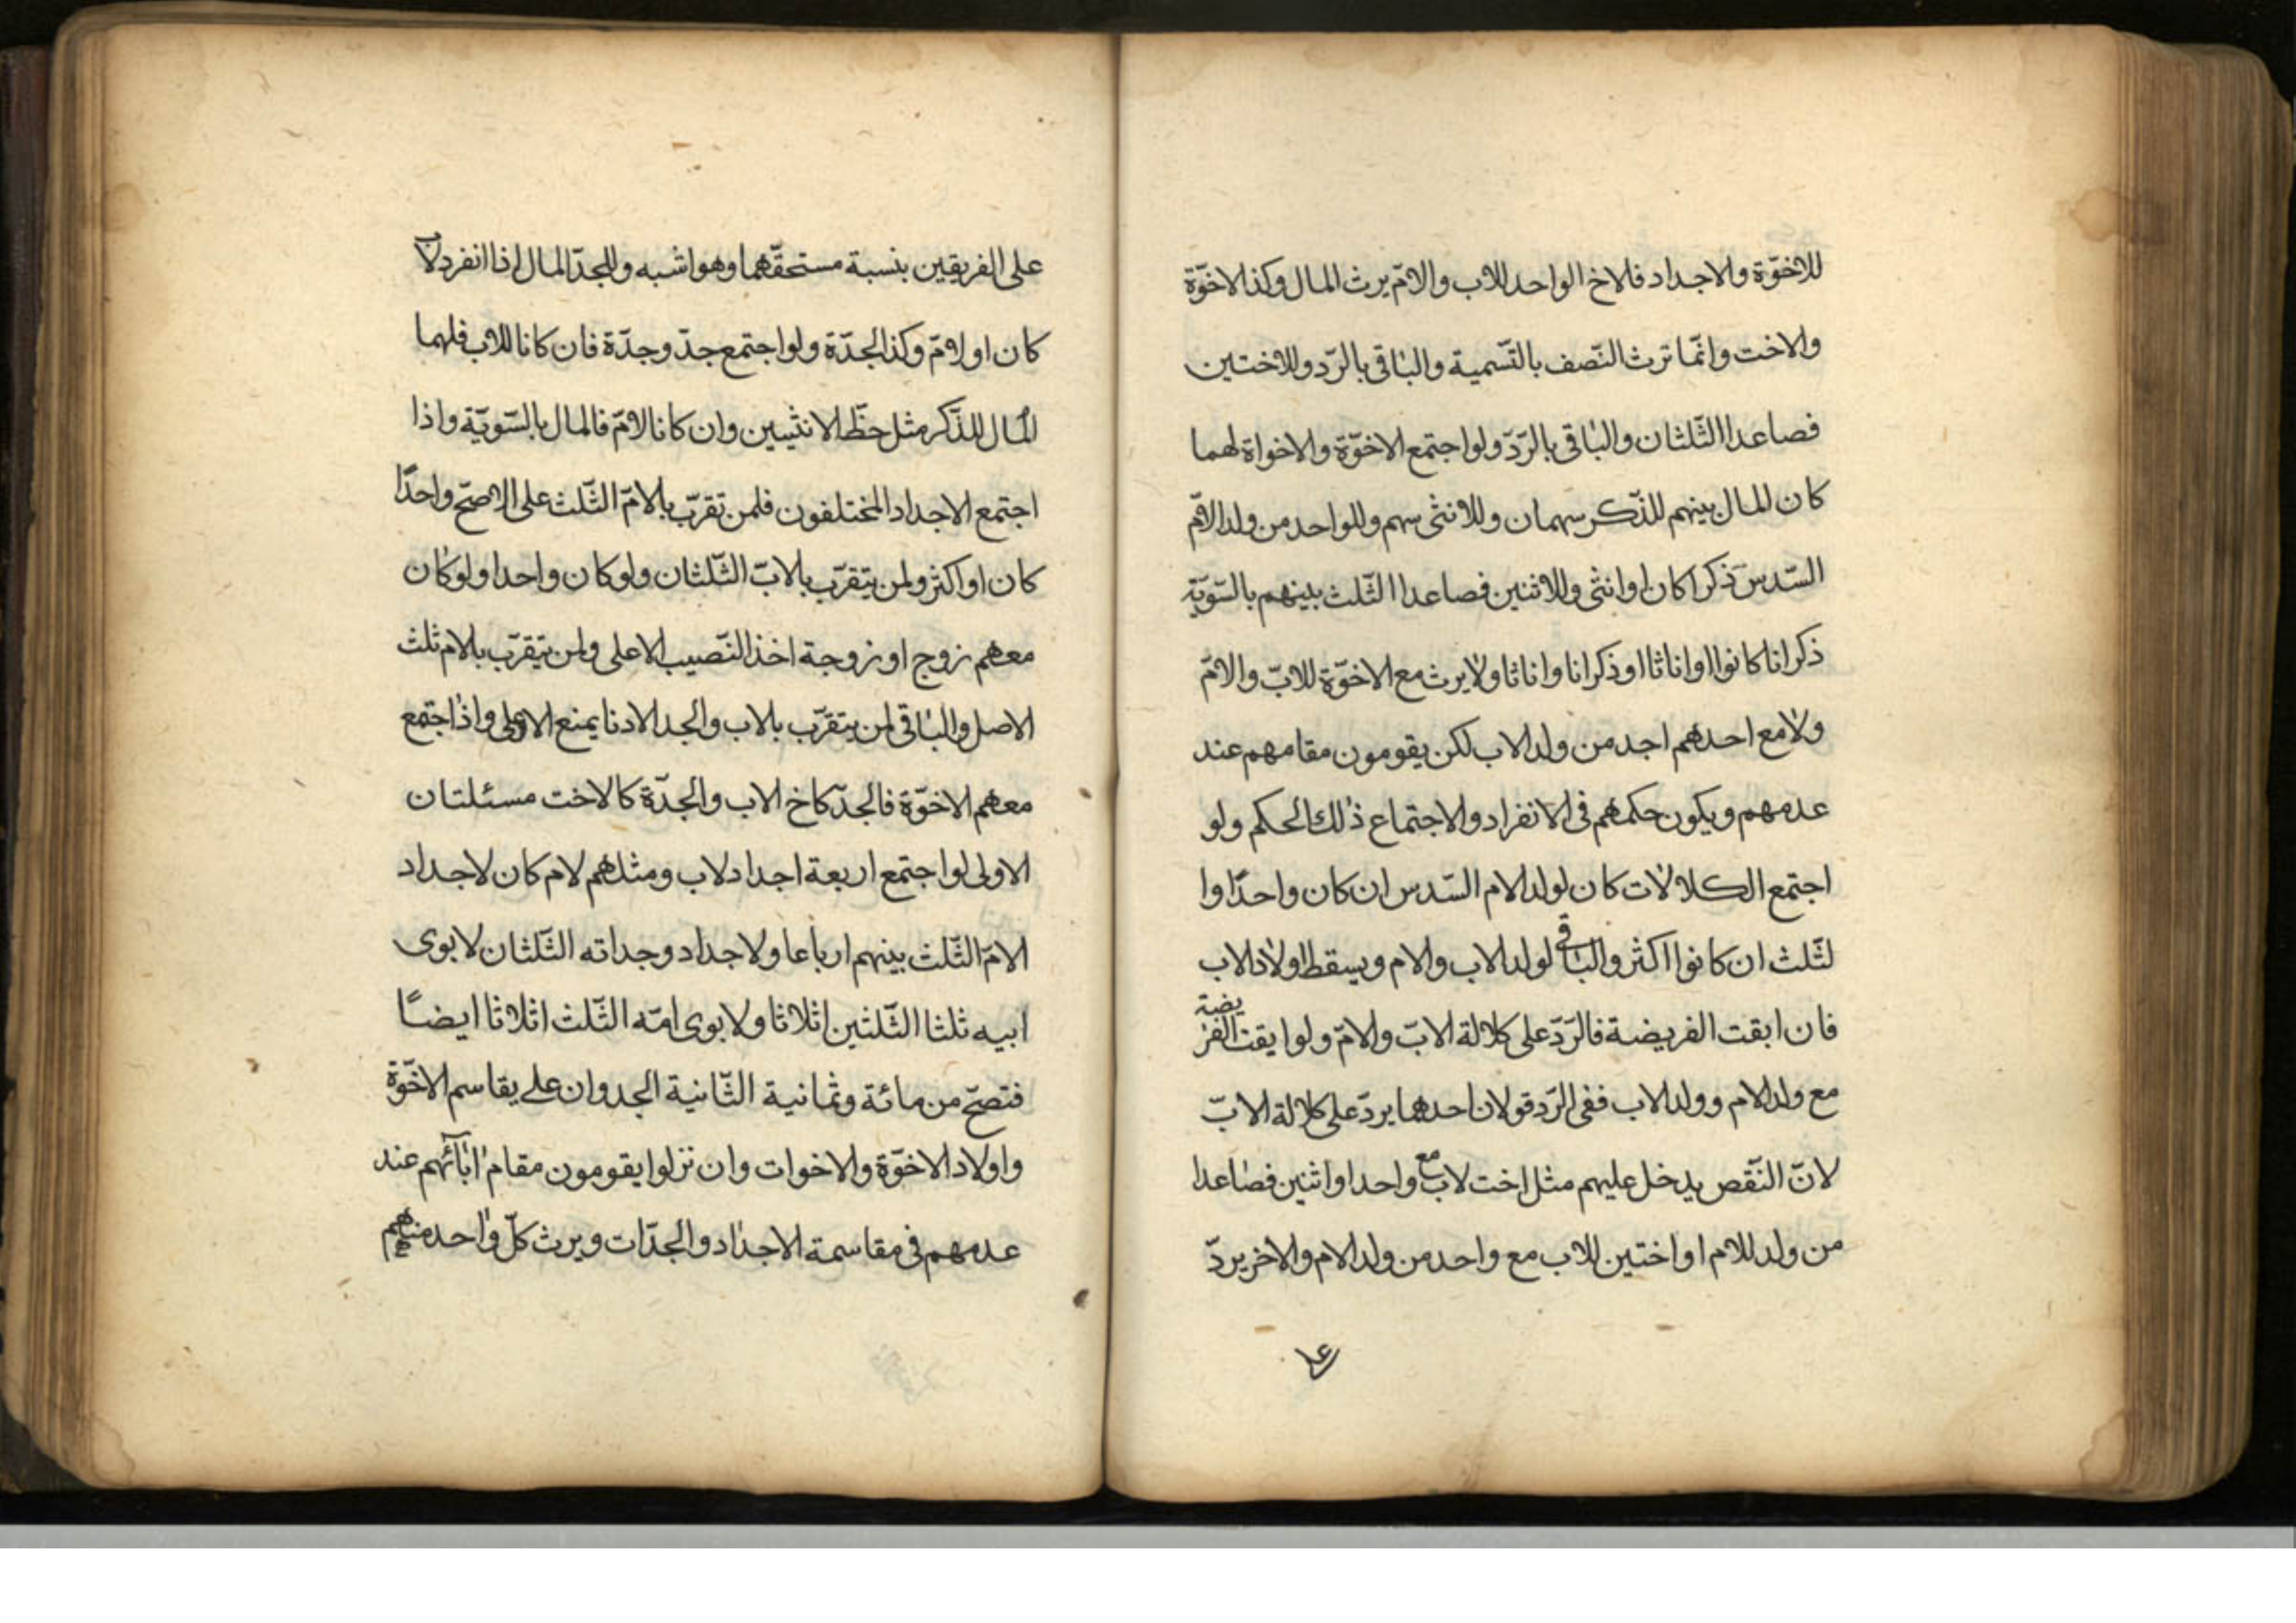 للاخوّة والاجداد فلاخ الواحد للاب والامّ يرث المال وكذا الاخوّة
والاخت وانّما ترث النّصف بالتّسمية والباقى بالرّد وللاختين
فصاعدا الثّلثان والباقى بالرّدّ ولو اجتمع الاخوّة والاخواة لهما
كان المال بينهم للذّكر سهمان وللانثى سهم وللواحد من ولد الامّ
السّدس ذكرا كان او انثى وللاثنين فصاعدا الثّلث بينهم بالسّويّة
ذكرانا كانوا او اناثا او ذكرانا واناثا ولا يرث مع الاخوّة للابّ والامّ
ولا مع احدهم اجد من ولد الاب لكن يقومون مقامهم عند
عدمهم ويكون حكمهم فى الانفراد والاجتماع ذلك الحكم ولو
اجتمع الكلالات كان لولد الام السّدس ان كان واحدًا وا
لثّلث ان كانوا اكثر والباقى لولد الاب والام ويسقط اولاد الاب
فان ابقت الفريضة فالرّدّ على كلالة الابّ والامّ ولو ابقت الفريضة
مع ولد الام وولد الاب ففى الرّد قولان احدهما يردّ على كلالة الابّ
لانّ النّقص يدخل عليهم مثل اخت لاب مع واحد او اثنين فصاعدا
من ولد للام او اختين للاب مع واحد من ولد الام والاخر يردّ
على
على الفريقين بنسبة مستحقّهما وهو اشبه وللجدّ المال اذا انفرد لاب
كان او لامّ وكذا الجدّة ولو اجتمع جدّ وجدّة فان كانا للاب فلهما
المال للذّكر مثل حظّ الانثيين وان كانا لامّ فالمال بالسّويّة واذا
اجتمع الاجداد المختلفون فلمن تقرّب بالامّ الثّلث على الاصحّ واحدًا
كان او اكثر ولمن يتقرّب بالابّ الثّلثان ولو كان واحدا ولو كان
معهم زوج او زوجة اخذ النّصيب الاعلى ولمن يتقرّب بالام ثلث
الاصل والباقى لمن يتقرّب بالاب والجد الادنا يمنع الاعلى واذا اجتمع
معهم الاخوّة فالجدّ كاخ الاب والجدّة كالاخت مسئلتان
الاولى لو اجتمع اربعة اجداد لاب ومثلهم لام كان لاجداد
الامّ الثّلث بينهم ارباعا ولاجداد وجداته الثّلثان لابوى
ابيه ثلثا الثّلثين اثلاثا ولابوى امّه الثّلث اثلاثا ايضًا
فتصحّ من مائة وثمانية الثّانية الجد وان على يقاسم الاخوّة
واولاد الاخوّة والاخوات وان نزلوا يقومون مقام ابآئهم عند
عدمهم فى مقاسمة الاجداد والجدّات ويرث كلّ واحد منهم